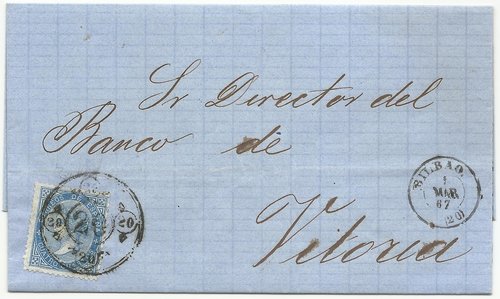 Sr Director del
Banco de
Vitoria
BILBAO
1
MAR
67
(20)
20
20